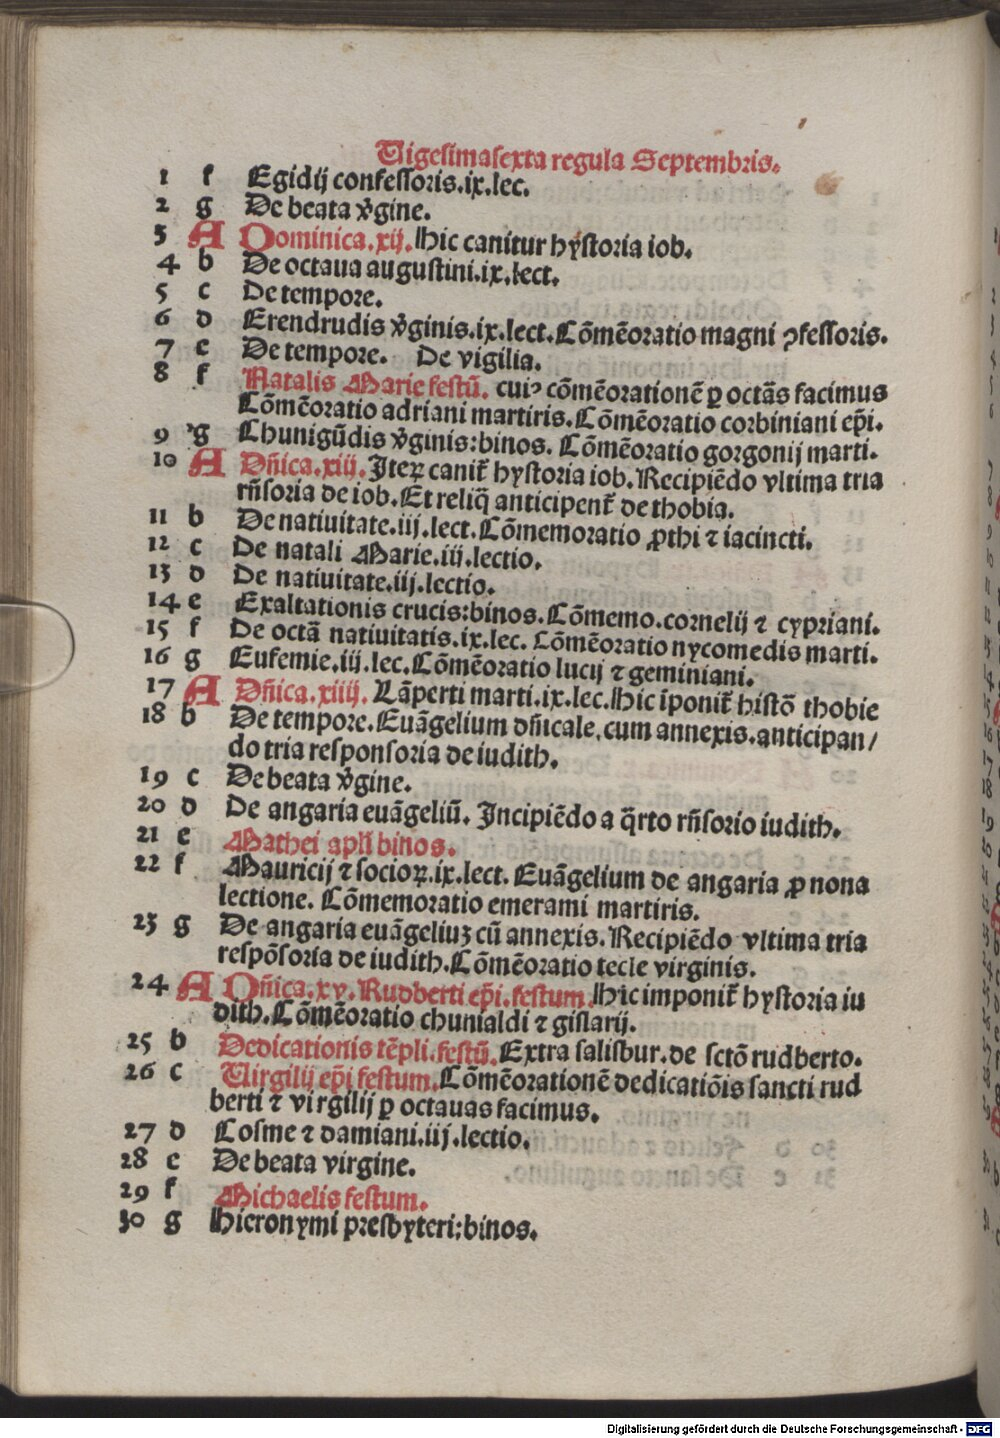 Uigesimasexta regula Septembris.
1 f Egidij confessoris.ix.lec.
2 g De beata v̔gine.
3 A Dominica.xij.Hic canitur hystoria iob.
4 b De octaua augustini.ix.lect.
5 c De tempore.
6 d Erendrudis v̔ginis.ix.lect.Cõmẽoratio magni ꝯfessoris.
7 e De tempore. De vigilia.
8 f Natalis Marie festũ. cuiꝰ cõmẽorationẽ ꝑ octãs facimus
Cõmẽoratio adriani martiris.Cõmẽoratio corbiniani ep̃i.
9 g Chunigũdis v̔ginis:binos. Cõmẽoratio gorgonij marti.
10 A Dñica.xiij.Iteꝝ canit̃ hystoria iob.Recipiẽdo vltima tria
rñsoria de iob.Et reliq̃ anticipent̃ de thobia.
11 b De natiuitate.iij.lect.Cõmemoratio ꝓthi ⁊ iacincti.
12 c De natali Marie.iij.lectio.
13 d De natiuitate.iij.lectio.
14 e Exaltationis crucis:binos.Cõmemo.cornelij ⁊ cypriani.
15 f De octã natiuitatis.ix.lec. Cõmẽoratio nycomedis marti.
16 g Eufemie.iij.lec.Cõmẽoratio lucij ⁊ geminiani.
17 A Dñica.xiiij. Lãperti marti.ix.lec.Hic ĩponit̃ histõ thobie
18 b De tempore.Euãgelium dñicale,cum annexis.anticipan/
do tria responsoria de iudith.
19 c De beata v̔gine.
20 d De angaria euãgeliũ. Incipiẽdo a q̃rto rñsorio iudith.
21 e Mathei apl̃i binos.
22 f Mauricij ⁊ socioꝝ.ix.lect. Euãgelium de angaria ꝓ nona
lectione. Cõmemoratio emerami martiris.
23 g De angaria euãgeliuꝫ cũ annexis.Recipiẽdo vltima tria
respõsoria de iudith.Cõmẽoratio tecle virginis.
24 A Dñica.xv. Rudberti ep̃i.festum.Hic imponit̃ hystoria iu
dith.Cõmẽoratio chunialdi ⁊ gislarij.
25 b Dedicationis tẽpli.festũ.Extra salisbur.de sctõ rudberto.
26 c Uirgilij ep̃i festum.Cõmẽorationẽ dedicatiõis sancti rud
berti ⁊ virgilij ꝑ octauas facimus.
27 d Cosme ⁊ damiani.iij.lectio.
28 e De beata virgine.
29 f Michaelis festum.
30 g Hieronymi presbyteri:binos.
Digitalisierung gefördert durch die Deutsche Forschungsgemeinschaft - DFG